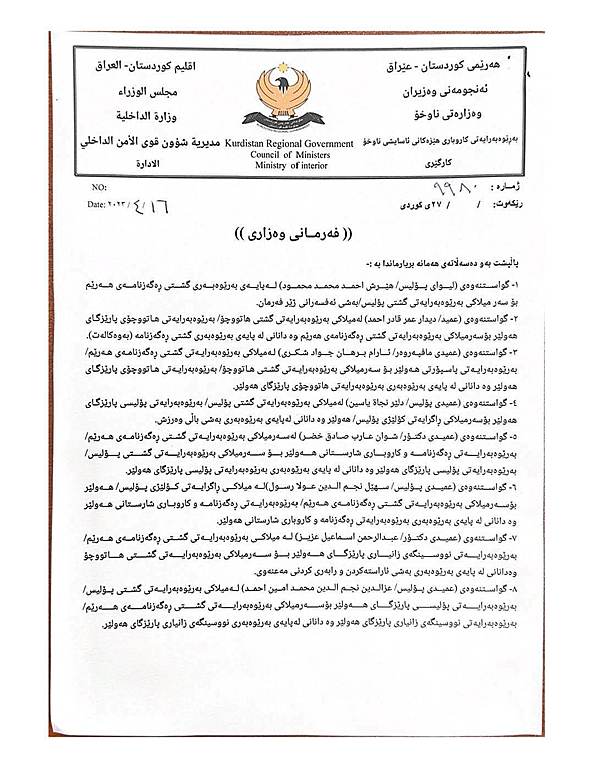 هەرێمی کوردستان - عێراق
ئەنجومەنی وەزیران
وەزارەتی ناوخۆ
بەڕێوەبەرایەتی کاروباری هێزەکانی ئاسایشی ناوخۆ
کارگێڕی
Kurdistan Regional Government
Council of Ministers
Ministry of interior
اقلیم کوردستان- العراق
مجلس الوزراء
وزارة الداخلیة
مدیریة شؤون قوی الأمن الداخلي
الادارة
ژمارە : ٩٩٨٠
NO:
ڕێکەوت: / / ٢٧ی کوردی
Date: ٢٠٢٣ / ٤ / ١٦
(( فەرمـانی وەزاری ))
پاڵپشت بەو دەسەڵاتەی هەمانە بریارماندا بە :-
١- گواستنەوەی (لیوای پۆلیس/ هێرش احمد محمد محمود) لەپایەی بەڕێوەبەری گشتی ڕەگەزنامەی هەرێم
بۆ سەر میلاکی بەڕێوەبەرایەتی گشتی پۆلیس/بەشی ئەفسەرانی ژێر فەرمان.
٢- گواستنەوەی (عمید/ دیدار عمر قادر احمد) لەمیلاکی بەڕێوەبەرایەتی گشتی هاتووچۆ/ بەڕێوەبەرایەتی هاتووچۆی پارێزگای
هەولێر بۆسەرمیلاکی بەڕێوەبەرایەتی گشتی ڕەگەزنامەی هەرێم وە دانانی لە پایەی بەڕێوەبەری گشتی ڕەگەزنامە (بەوەکالەت).
٣- گواستنەوەی (عمیدی مافپەروەر/ ئارام برهـان جـواد شـکـری) لەمیلاکی بەڕێوەبەرایـەتی گشتـی ڕەگەزنامـەی هـەرێـم/
بەڕێوەبەرایـەتی پاسپۆرتی هـەولێر بـۆ سـەرمیلاکی بەڕێوەبەرایـەتی گـشـتـی هـاتـووچـۆ/ بەڕێوەبەرایـەتی هـاتـووچۆی پارێزگای
هەولێر وە دانانی لە پایەی بەڕێوەبەری بەڕێوەبەرایەتی هاتووچۆی پارێزگای هەولێر.
٤- گواستنەوەی (عمیدی پۆلیس/ دلێر نجاة یاسین) لەمیلاکی بەڕێوەبەرایەتی گشتی پۆلیس/ بەڕێوەبەرایەتی پۆلیسی پارێزگای
هەولێر بۆسەرمیلاکی ڕاگرایەتی کۆلێژی پۆلیس/ هەولێر وە دانانی لەپایەی بەڕێوەبەری بەشی باڵی وەرزش.
٥- گواستنەوەی (عمیدی دکتـۆر/ شوان عارب صادق خضر) لەسەرمیلاکی بەڕێوەبەرایـەتی گشتـی ڕەگەزنامـەی هـەرێـم/
بەڕێوەبەرایـــەتی ڕەگەزنامـــە و کاروبـاری شارستـانی هـــەولێر بـــۆ ســـەر میلاکی بەڕێوەبەرایـــەتی گـشتـــی پـــۆلیس/
بەڕێوەبەرایەتی پۆلیسی پارێزگای هەولێر وە دانانی لە پایەی بەڕێوەبەری بەڕێوەبەرایەتی پۆلیسی پارێزگای هەولێر.
٦- گواستنەوەی (عمیـدی پـۆلیس/ سـهێل نجـم الـدین عـولا رسـول)لـە میلاکـی ڕاگرایـەتی کـۆلێـژی پـۆلیس/ هـەولێر
بۆسـەرمیلاکی بەڕێوەبەرایـەتی گشتـی ڕەگەزنامـەی هـەرێم/ بەڕێوەبەرایـەتی ڕەگەزنامـە و کاروبـاری شارستانی هـەولێر
وە دانانی لە پایەی بەڕێوەبەری بەڕێوەبەرایەتی ڕەگەزنامە و کاروباری شارستانی هەولێر.
٧- گواستنەوەی (عمیدی دکتـۆر/ عبدالرحمن اسماعیل عزیـز) لـە میلاکـی بەڕێوەبەرایـەتی گشتـی ڕەگەزنامـەی هـەرێم/
بەڕێوەبەرایـــەتی نووســـینگەی زانیـــاری پارێزگـــای هـــەولێر بـــۆ ســـەرمیلاکی بەڕێوەبەرایـــەتی گشتـــی هـــاتووچۆ
وەدانانی لە پایەی بەڕێوەبەری بەشی ئاراستەکردن و رابەری کردنی مەعنەوی.
٨- گواستنەوەی (عمیـدی پـۆلیس/ عزالـدین نجـم الـدین محمـد امـین احمـد) لـەمیلاکی بەڕێوەبەرایـەتی گشتی پـۆلیس/
بەڕێوەبەرایـــەتی پۆلیســـی پارێزگـــای هـــەولێر بۆســـەرمیلاکی بەڕێوەبەرایـــەتی گشتـــی ڕەگەزنامـــەی هـــەرێـم/
بەڕێوەبەرایەتی نووسینگەی زانیاری پارێزگای هەولێر وە دانانی لەپایەی بەڕێوەبەری نووسینگەی زانیاری پارێزگای هەولێر.